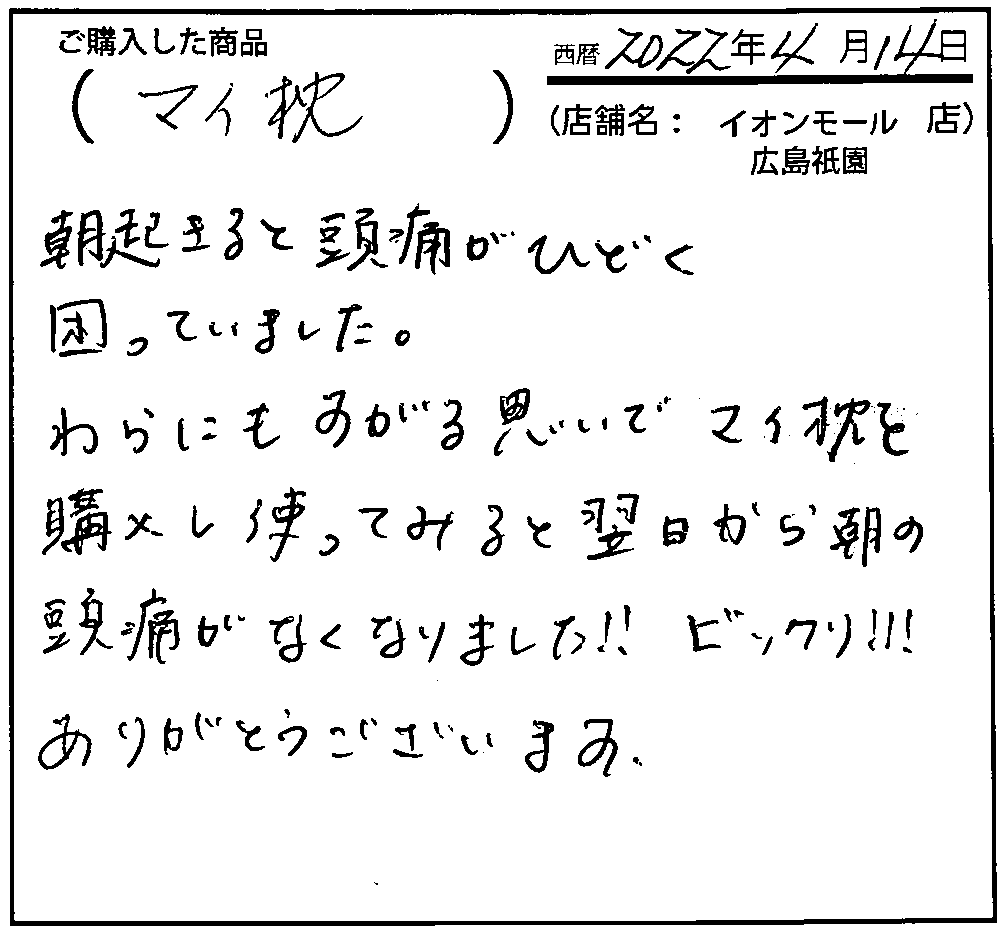 ご購入した商品
(マイ枕)
西暦2022年4月14日
(店舗名: イオンモール 店)
広島祇園
朝起きると頭痛がひどく
困っていました。
わらにもすがる思いでマイ枕を
購入し使ってみると翌日から朝の
頭痛がなくなりました!! ビックリ!!!
ありがとうございます.